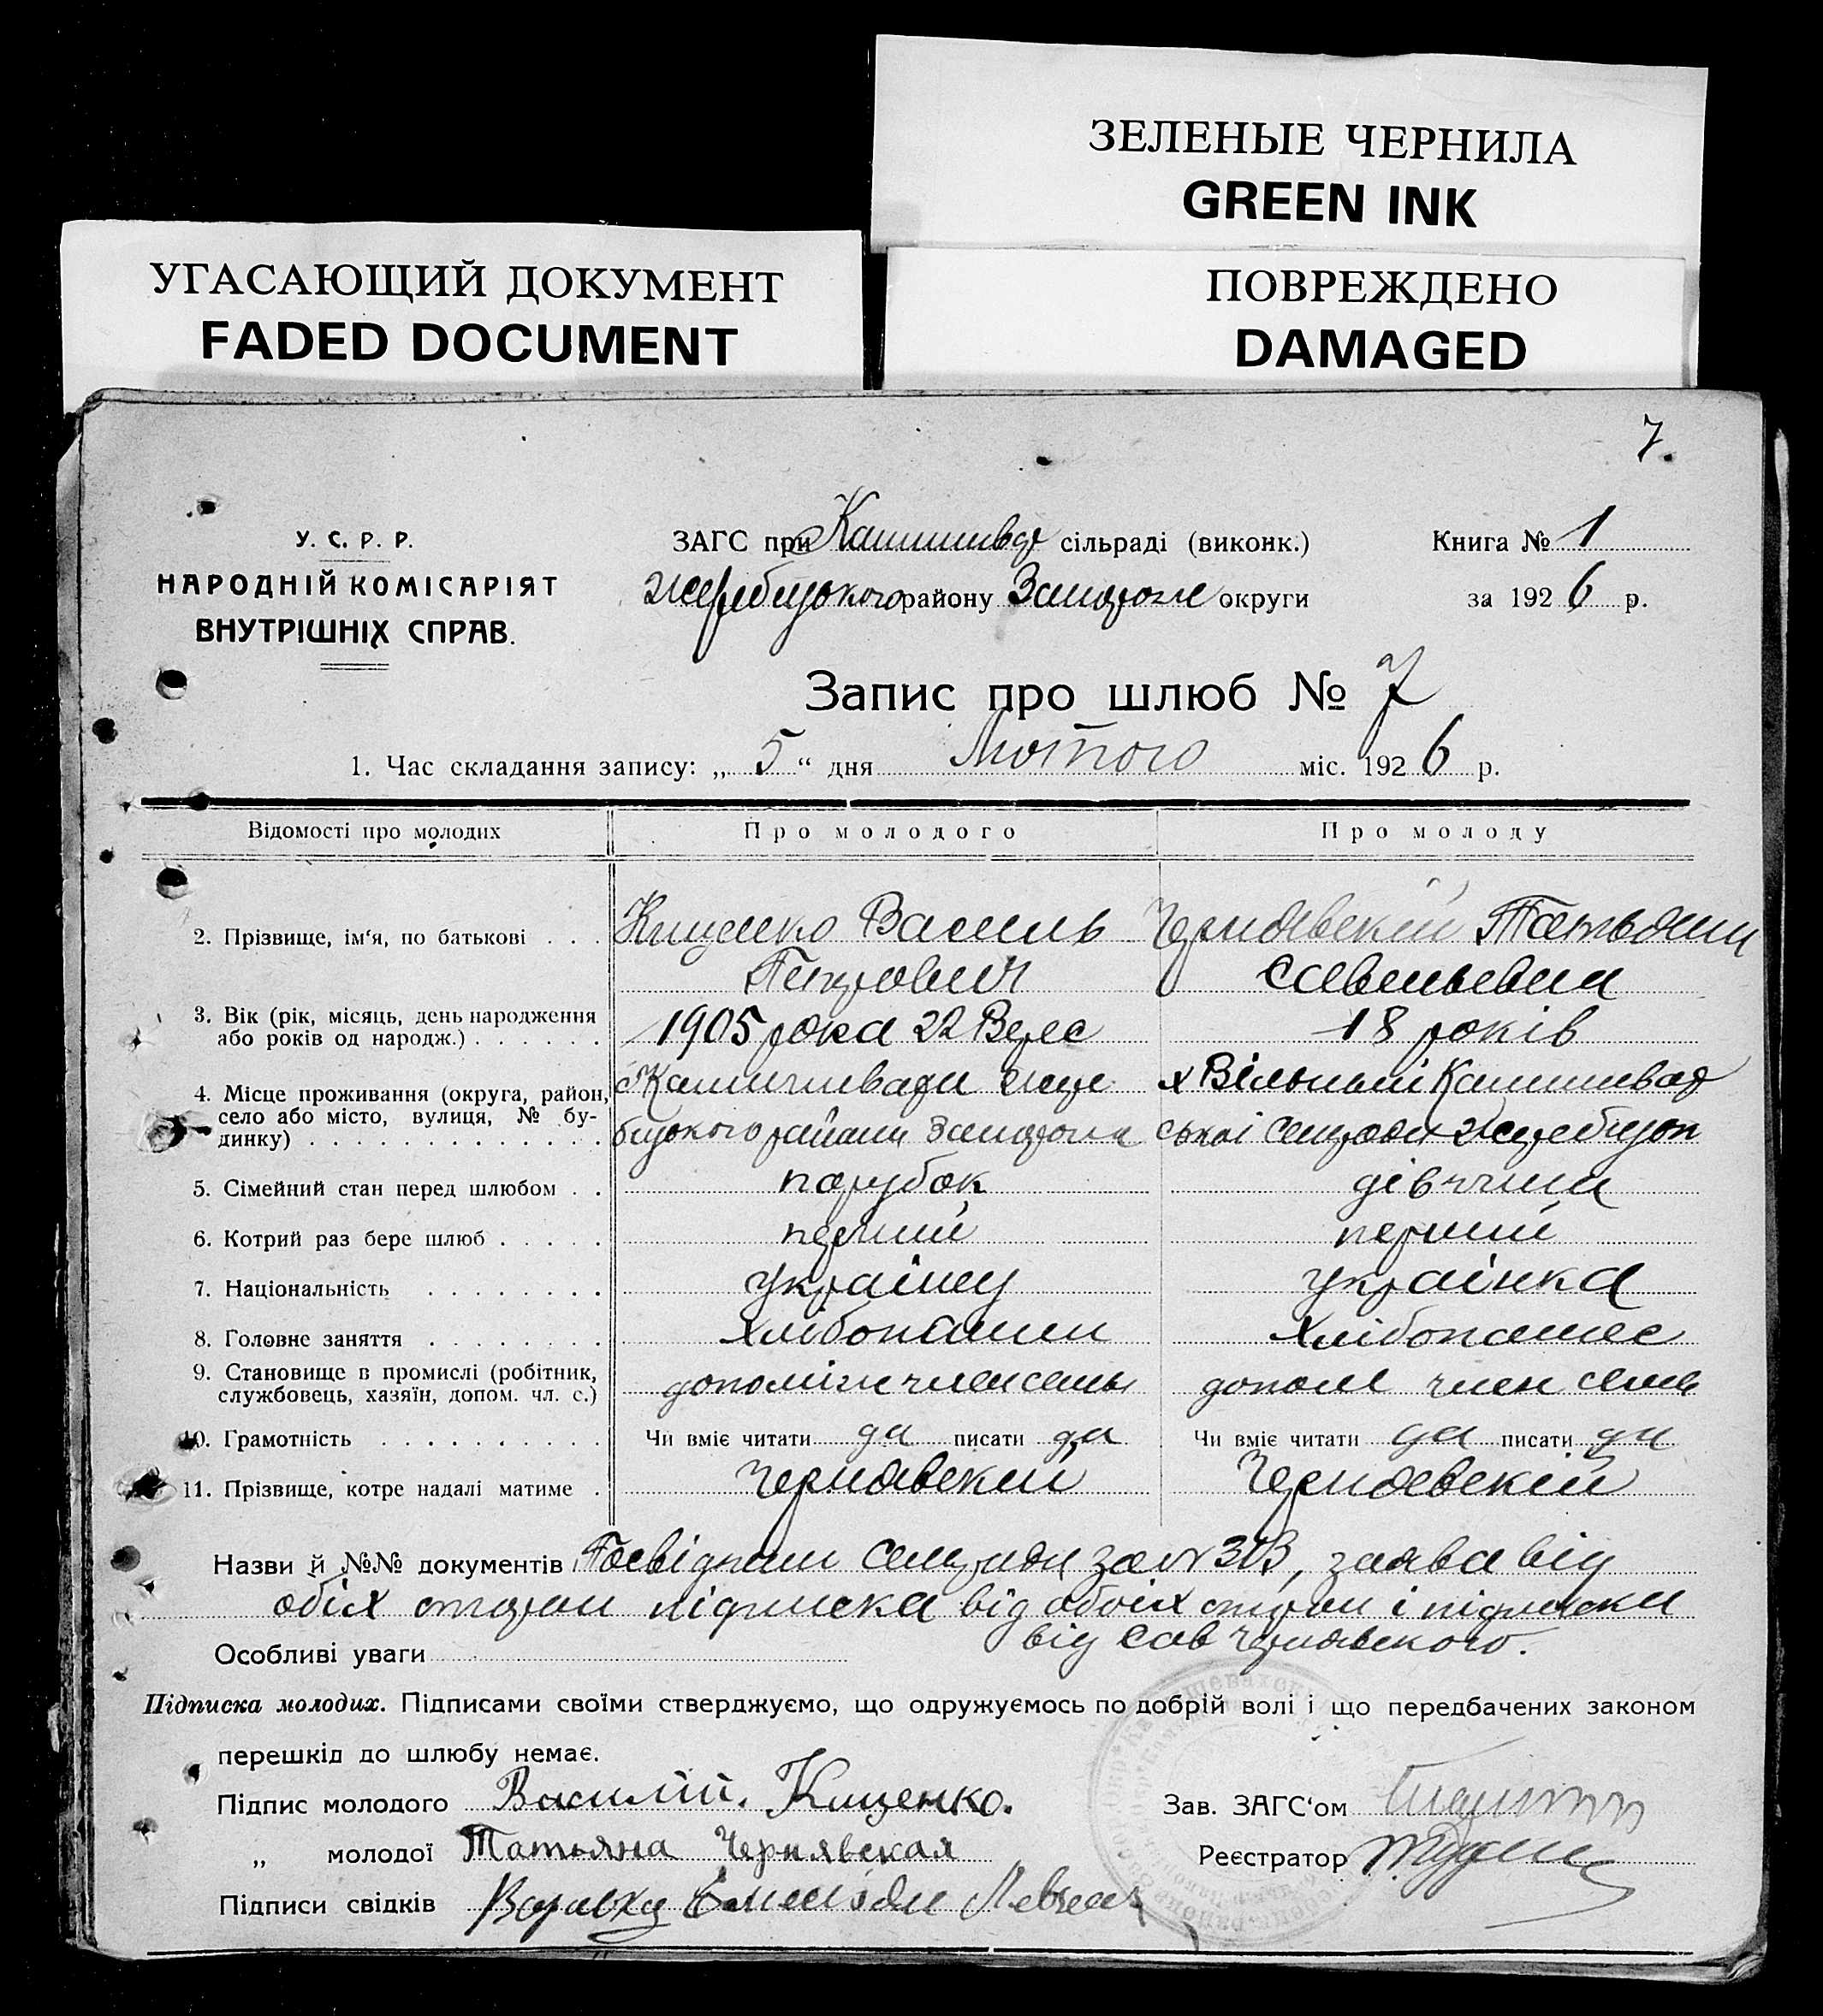 ЗЕЛЕНЫЕ ЧЕРНИЛА
GREEN INK
УГАСАЮЩИЙ ДОКУМЕНТ
FADED DOCUMENT
ПОВРЕЖДЕНО
DAMAGED
7.
У. С. Р. Р.
НАРОДНІЙ КОМІСАРІЯТ
ВНУТРІШНІХ СПРАВ.
ЗАГС при сільраді (виконк.)
Жеребецького району Запорож округи
Книга № 1
за 1926 р.
Запис про шлюб № 7
1. Час складання запису: „ 5 “ дня Лютого міс. 1926 р.
Відомості про молодих Про молодого Про молоду
2. Прізвище, ім'я, по батькові . . . Кищенко Василь Чернявский Татьяни
Петрович Савельевна
3. Вік (рік, місяць, день народження
або років од народж.) . . . . . . 1905 рока 22 Верес 18 років
4. Місце проживання (округа, район,
село або місто, вулиця, № бу-
динку) . . . . . . . . . . . . .
5. Сімейний стан перед шлюбом . . парубок дівчина
6. Котрий раз бере шлюб . . . . . перший перший
7. Національність . . . . . . . . украінец украінка
8. Головне заняття . . . . . . . . хлібопаш хлібопаш
9. Становище в промислі (робітник,
службовець, хазяїн, допом. чл. с.) допоміж член семьи допом член семь
10. Грамотність . . . . . . . . . . Чи вміє читати да писати да Чи вміє читати да писати да
11. Прізвище, котре надалі матиме . Чернявский Чернявский
Назви й №№ документів заява від
обіх сторон підписка від обоіх сторон і підписки
від Сав Чернявского.
Особливі уваги
Підписка молодих. Підписами своїми стверджуємо, що одружуємось по добрій волі і що передбачених законом
перешкід до шлюбу немає.
Підпис молодого Василий. Кищенко.
„ молодої Татьяна Чернявская
Підписи свідків
Зав. ЗАГС'ом
Реєстратор